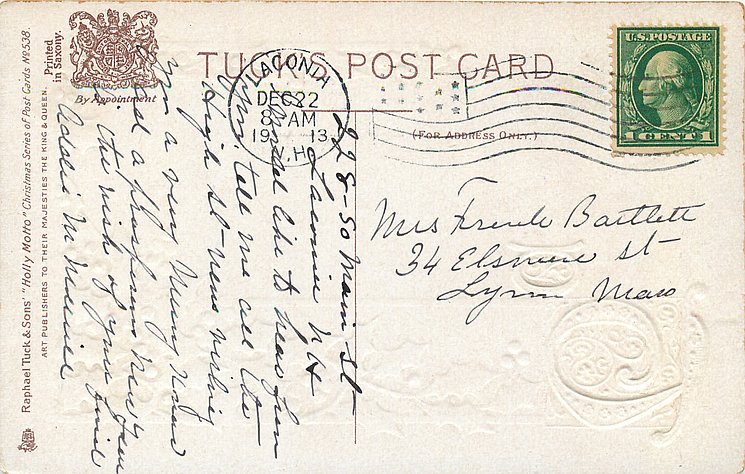 Raphael Tuck & Sons' "Holly Motto" Christmas Series of Post Cards No 538.
ART PUBLISHERS TO THEIR MAJESTIES THE KING & QUEEN.
Printed
in Saxony.
By Appointment
TUCK'S POST CARD
(FOR ADDRESS ONLY.)
LACONIA
DEC 22
8 AM
1913
N.H.
U.S. POSTAGE
1 CENT 1
228-50 Main St
Laconia N H
like to hear from
you. Tell me all the
High St news wishing
you a very Merry Xmas
and a prosperous New Year
the wish of your friend
Addie M
Mrs Bartlett
34 Elsmere St
Lynn Mass